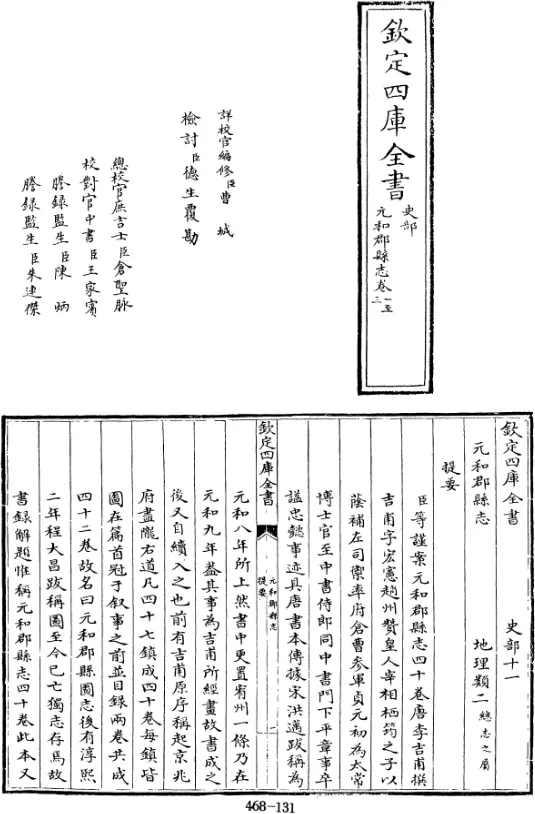 欽定四庫全書
史部
元和郡縣志卷一至
三
詳校官編修臣曹城
檢討臣德生覆勘
總校官庶吉士臣倉聖脉
校對官中書臣王家賓
謄錄監生臣陳炳
謄錄監生臣朱連傑
欽定四庫全書 史部十一
元和郡縣志 地理類二總志之屬
提要
臣等謹案元和郡縣志四十卷唐李吉甫撰
吉甫字宏憲趙州贊皇人宰相栖筠之子以
蔭補左司禦率府倉曹參軍貞元初為太常
博士官至中書侍郎同中書門下平章事卒
諡忠懿事迹具唐書本傳據宋洪邁跋稱為
欽定四庫全書
元和郡縣志
提要
元和八年所上然書中更置宥州一條乃在
元和九年葢其事為吉甫所經畫故書成之
後又自續入之也前有吉甫原序稱起京兆
府盡隴右道凡四十七鎮成四十卷每鎮皆
圖在篇首冠于叙事之前並目錄兩卷共成
四十二卷故名曰元和郡縣圖志後有淳熙
二年程大昌跋稱圖至今已亡獨志存焉故
書錄解題惟稱元和郡縣志四十卷此本又
468-131